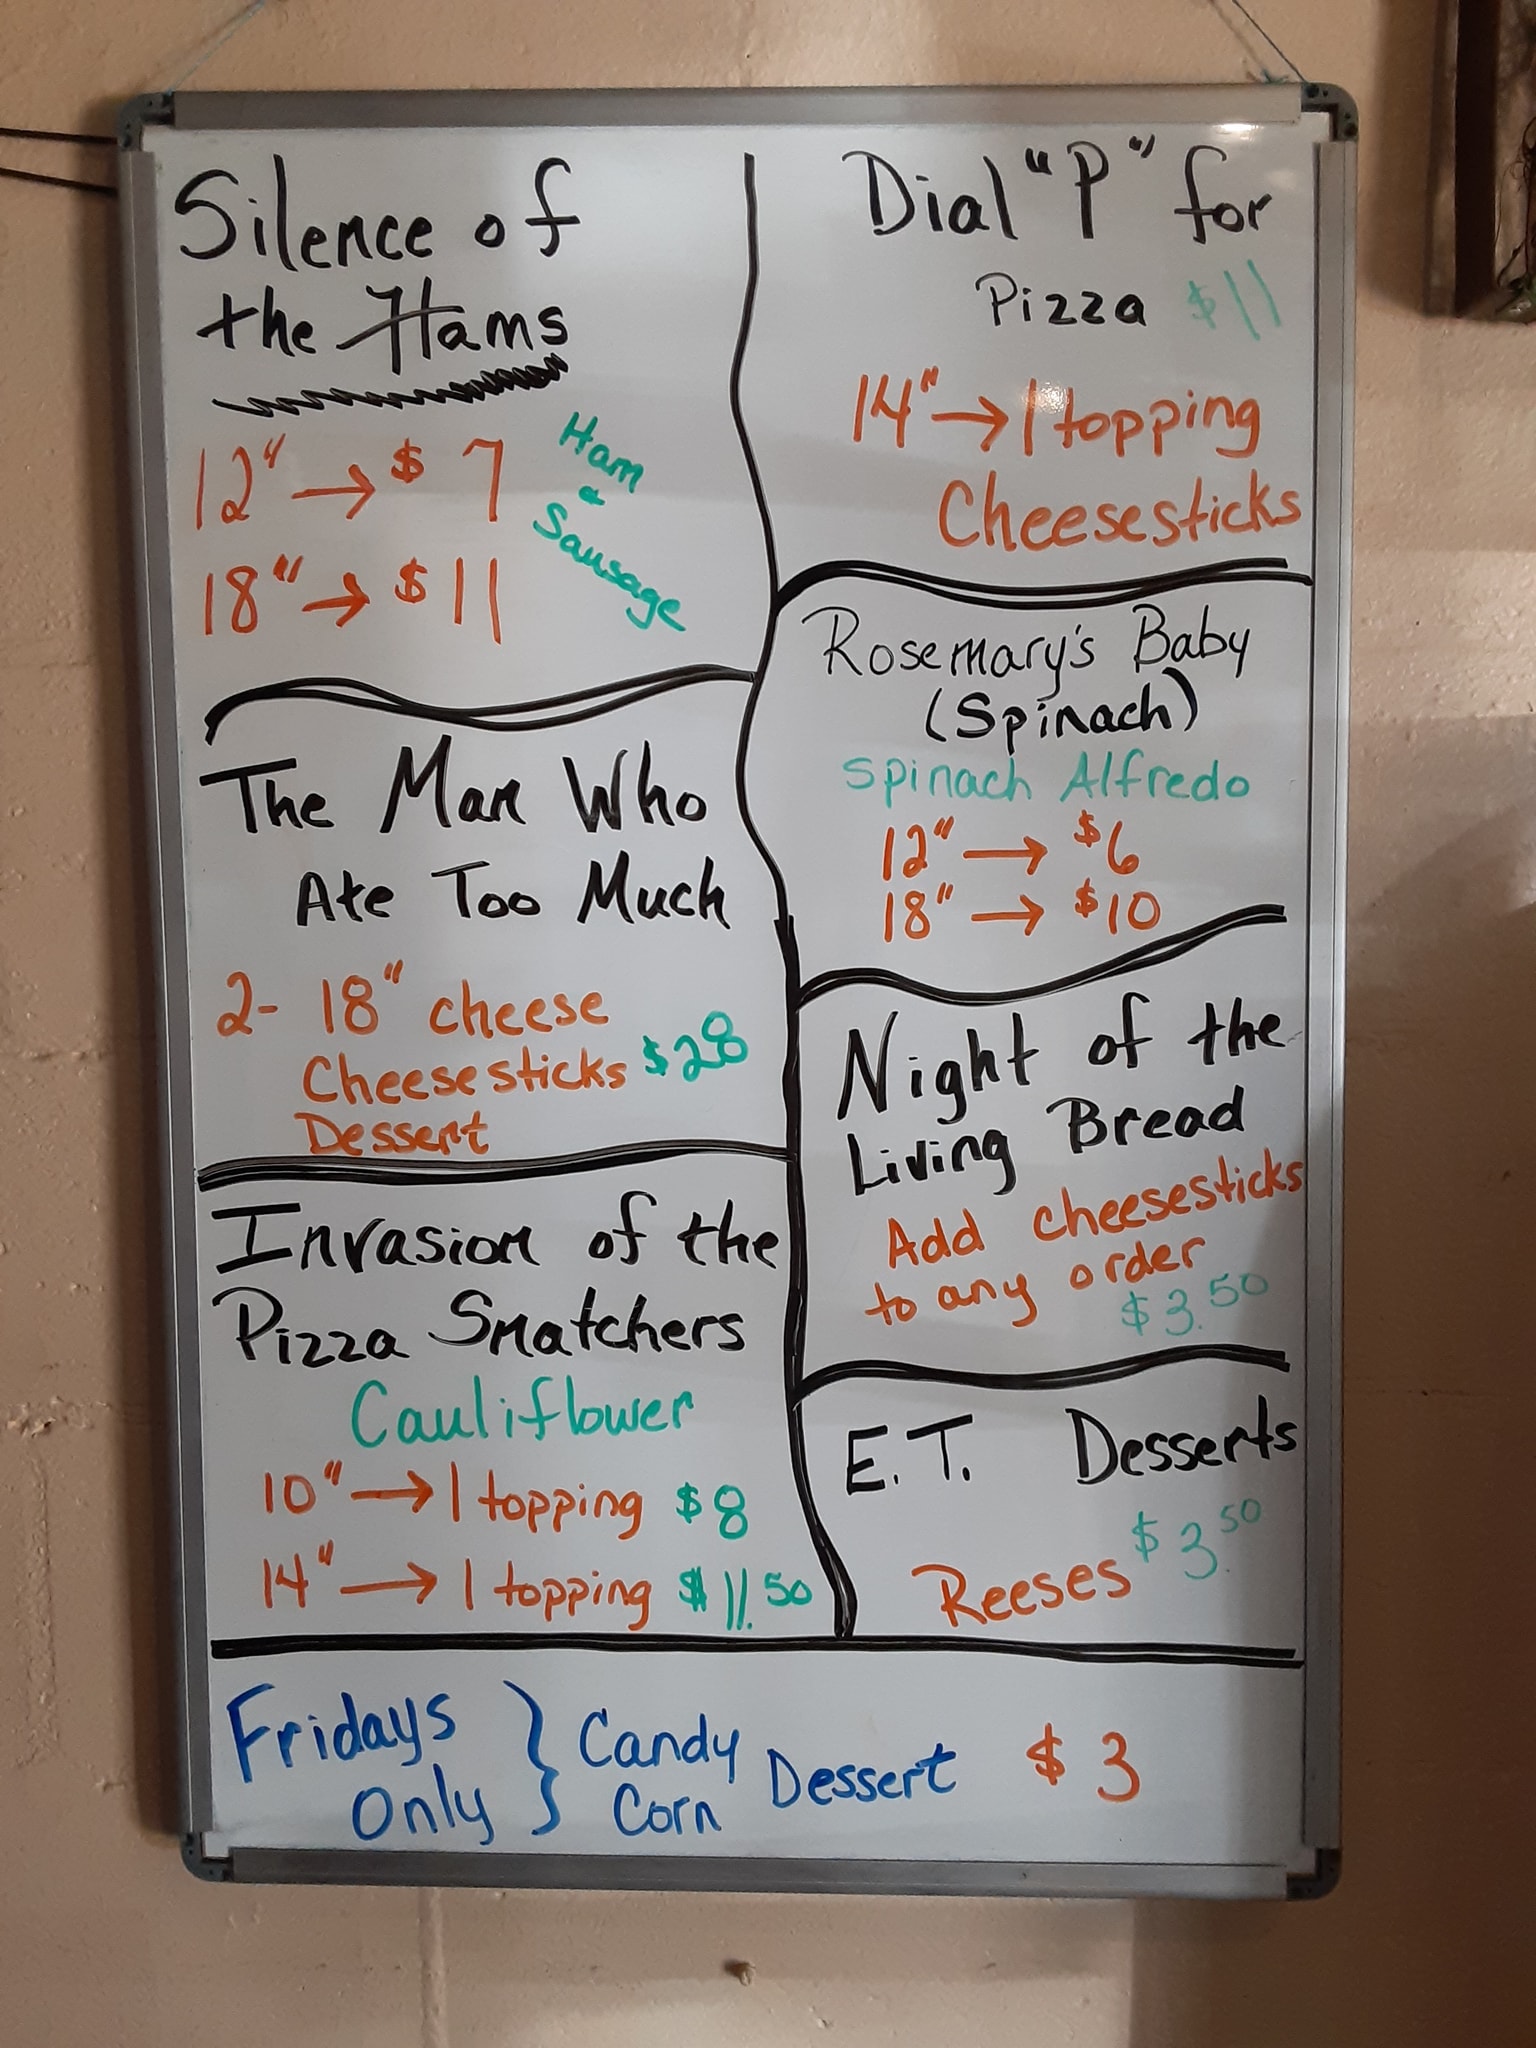 Silence of
the Hams
12" → $ 7
18" → $ 11
Ham
&
Sausage
The Man Who
Ate Too Much
2- 18" cheese
Cheesesticks $28
Dessert
Invasion of the
Pizza Snatchers
Cauliflower
10" → 1 topping $8
14" → 1 topping $11.50
Dial "P" for
Pizza $11
14" → 1 topping
Cheesesticks
Rosemary's Baby
(Spinach)
Spinach Alfredo
12" → $6
18" → $10
Night of the
Living Bread
Add cheesesticks
to any order
$3.50
E.T. Desserts
Reeses $3.50
Fridays
Only } Candy
Corn Dessert $3